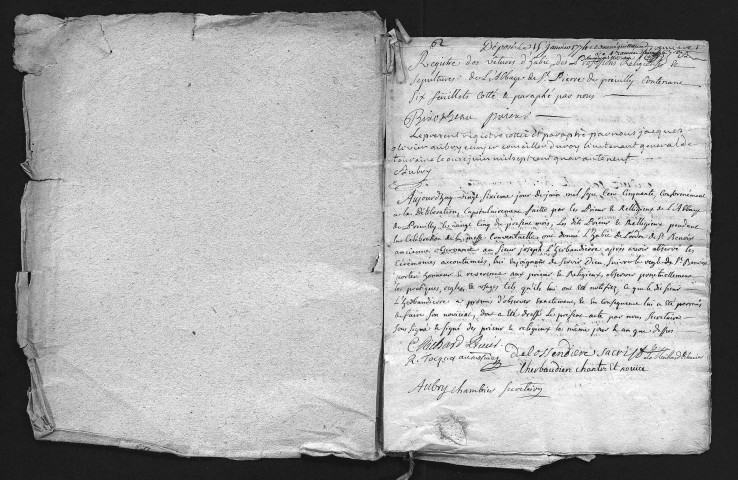 62 Déposé le 15 Janvier 1761
Registre des vêtures d'habit, des Professions Religieuses &
sépultures de L'Abbaye de St. Pierre de preuilly contenant
six feuillets cotté & paraphé par nous
prieur
Le present registre cotté et paraphé par nous jacques
olivier aubry ecuyer conseiller du roy lieutenant general de
touraine le onze juin mil sept cent quarante neuf
Aubry
Aujourdhuy vingt sixieme jour de juin mil sept cent cinquante, conformément
a la déliberation, capitulairement faitte par les Prieur & Religieux de L'Abbaye
de Preuilly le vingt cinq du present mois, Les dits Prieur & Religieux pendant
la Célébration de la messe Conventuelle ont donné L'habit de L'ordre de St. Benoist
ancienne observance au sieur joseph Lherbaudiere après avoir observé les
Cérémonies accoutumées, lui enjoignant de servir Dieu, suivre la regle de St. Benoist
porter honneur & reverence aux prieur & Religieux, observer ponctuellement
les pratiques, regles & usages tels qu'ils lui ont été notifiés, ce que le dit sieur
Lherbaudiere a promis d'observer exactement, & en consequence lui a été permis
de faire son noviciat, dont a été dressé Le present acte par nous Secretaire
soussigné & signé des prieur & religieux les même jour & an que dessus
R. Tocque aumosnier
delossendiere sacriste
lherbaudiere chantre et novice
Aubry chambrier Secretaire